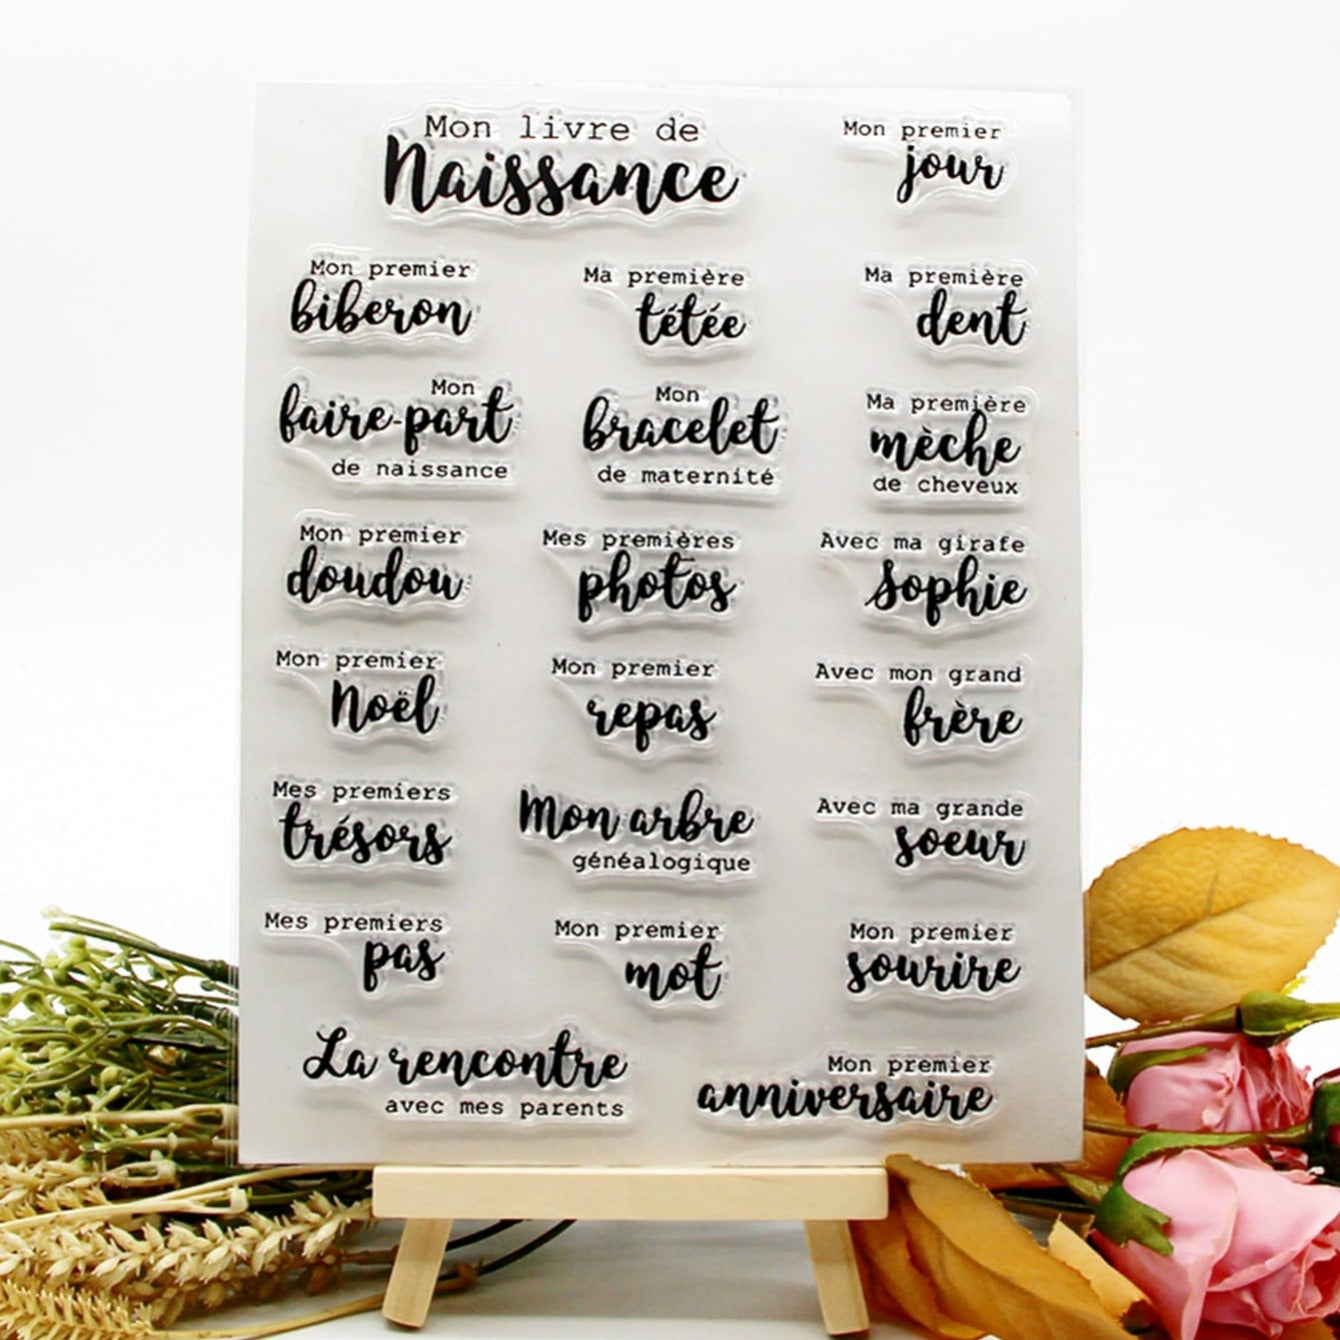 Mon livre de
Naissance
Mon premier
jour
Mon premier
biberon
Ma première
tétée
Ma première
dent
Mon
faire-part
de naissance
Mon
bracelet
de maternité
Ma première
mèche
de cheveux
Mon premier
doudou
Mes premières
photos
Avec ma girafe
Sophie
Mon premier
Noël
Mon premier
repas
Avec mon grand
frère
Mes premiers
trésors
Mon arbre
généalogique
Avec ma grande
soeur
Mes premiers
pas
Mon premier
mot
Mon premier
sourire
La rencontre
avec mes parents
Mon premier
anniversaire